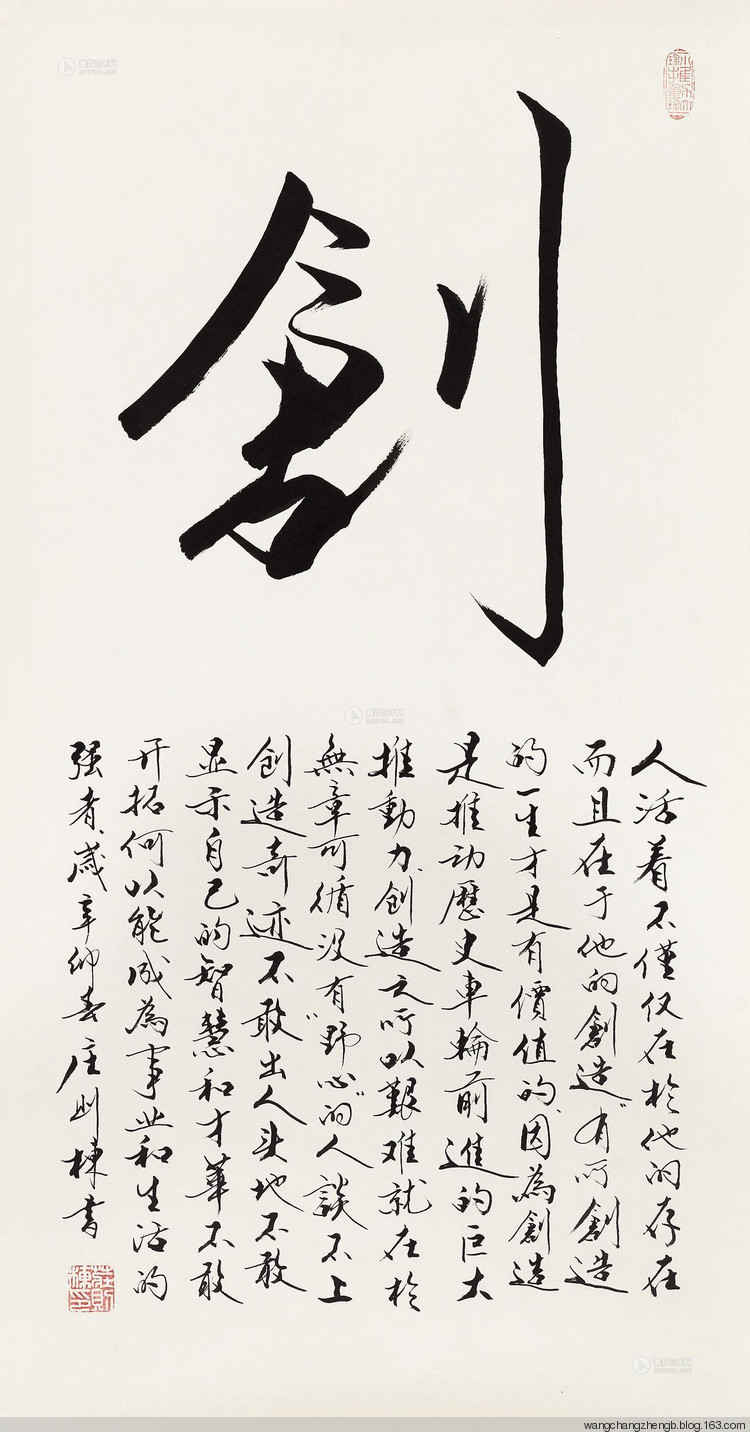 創
人活着不僅仅在於他的存在
而且在于他的創造"有所創造
的一生才是有價值的因為創造
是推动歷史車輪前進的巨大
推動力創造之所以艱难就在於
無章可循没有"野心"的人談不上
創造奇迹不敢出人头地不敢
显示自己的智慧和才華不敢
开拓何以能成為事业和生活的
强者歲辛卯春庄则棟書
莊則棟印
wangchangzhengb.blog.163.com